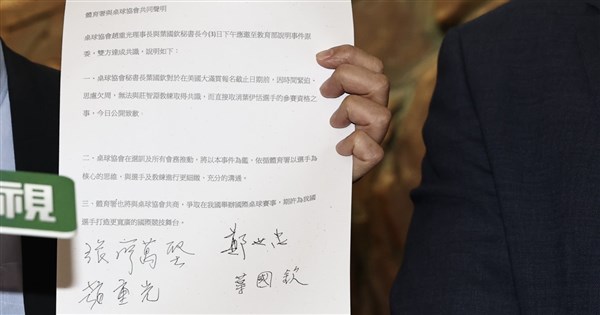 體育署與桌球協會共同聲明
桌球協會趙重光理事長與葉國欽秘書長今日下午應邀至教育部說明事件原
委，雙方達成共識，說明如下：
一、桌球協會秘書長葉國欽對於在美國大滿貫報名截止日期前，因時間緊迫、
思慮欠周，無法與莊智淵教練取得共識，而直接取消葉伊恬選手的參賽資格之
事，今日公開致歉。
二、桌球協會在選訓及所有會務推動，將以本事件為鑑，依循體育署以選手為
核心的思維，與選手及教練進行更細緻、充分的溝通。
三、體育署也將與桌球協會共商，爭取在我國舉辦國際桌球賽事，期許為我國
選手打造更寬廣的國際競技舞台。
張廖萬堅 鄭世忠
趙重光 葉國欽
視